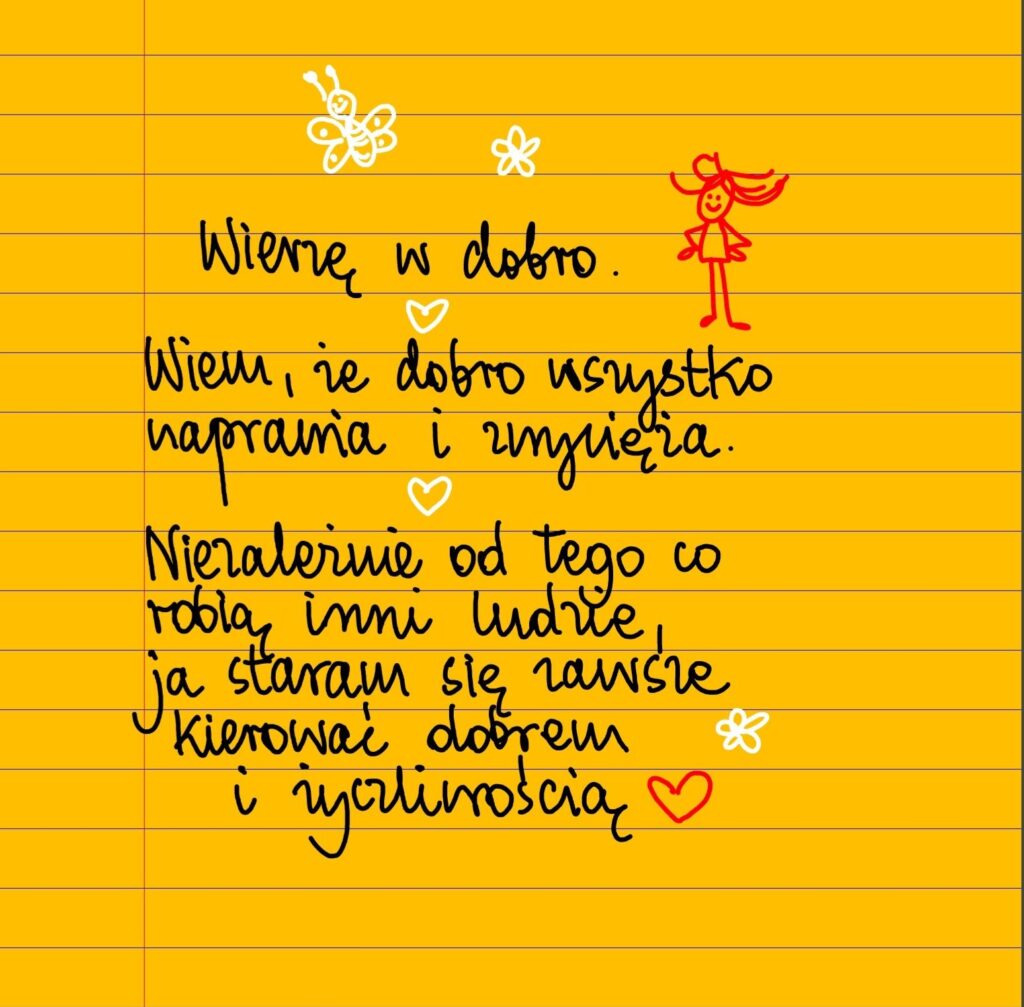 Wierzę w dobro.
Wiem, że dobro wszystko
naprawia i zwycięża.
Niezależnie od tego co
robią inni ludzie,
ja staram się zawsze
kierować dobrem
i życzliwością